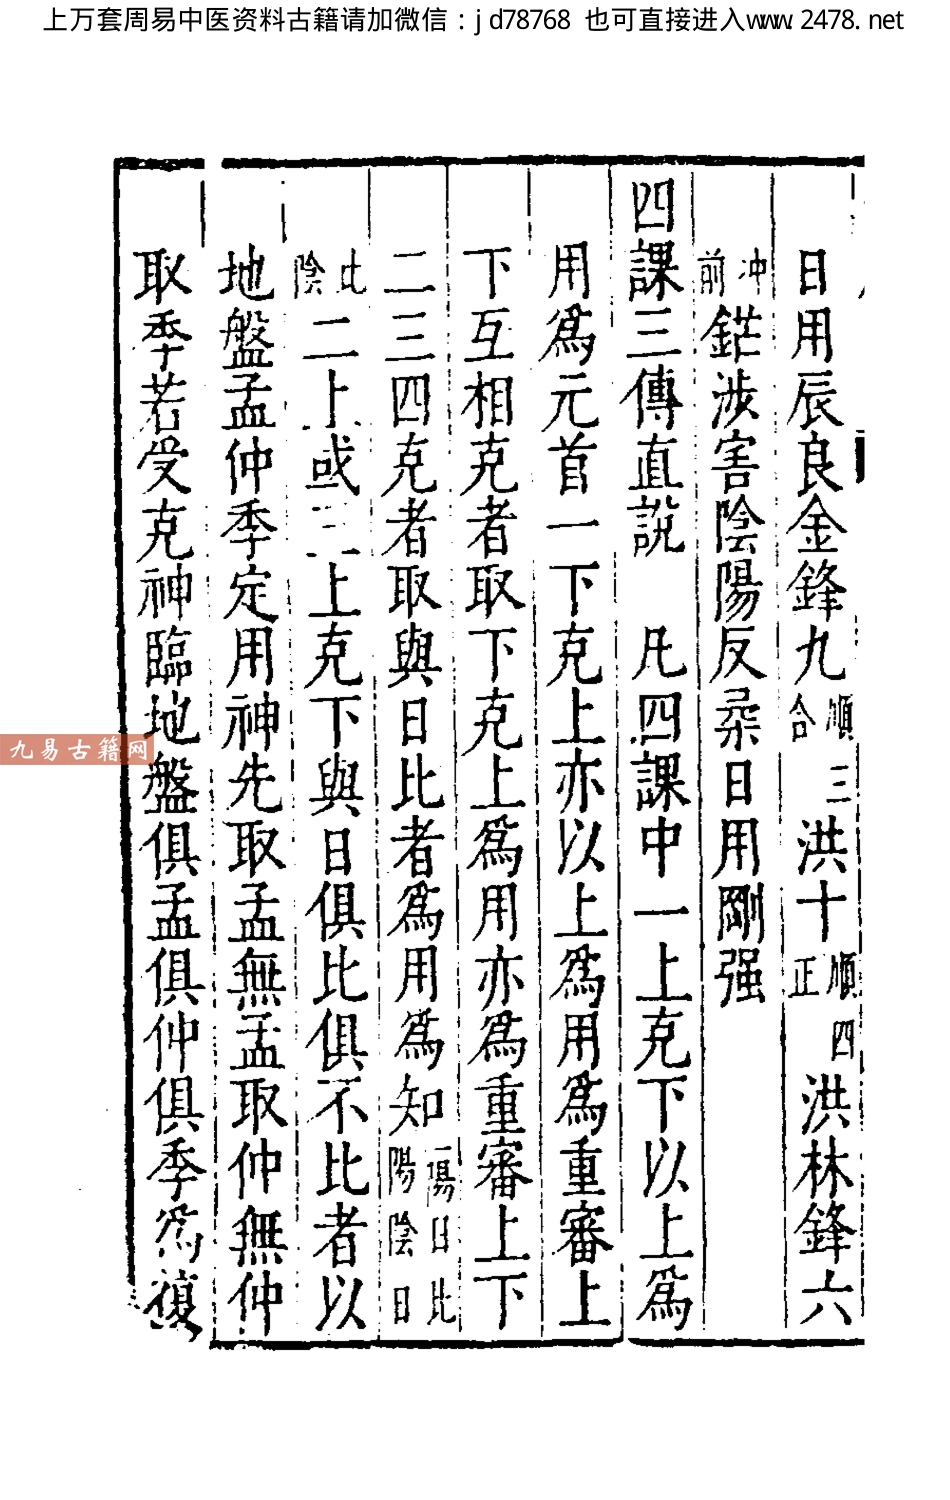 上万套周易中医资料古籍请加微信：jd78768 也可直接进入www.2478.net
日用辰良金鋒九順三合洪十順四正洪林鋒六
冲前鋩涉害陰陽反桒日用剛强
四課三傳直說　凡四課中一上克下以上爲
用爲元首一下克上亦以上爲用爲重審上
下互相克者取下克上爲用亦爲重審上下
二三四克者取與日比者爲用爲知一陽日比陽陰日
比陰二上或三上克下與日俱比俱不比者以
地盤孟仲季定用神先取孟無孟取仲無仲
取季若受克神臨地盤俱孟俱仲俱季爲復
九易古籍网